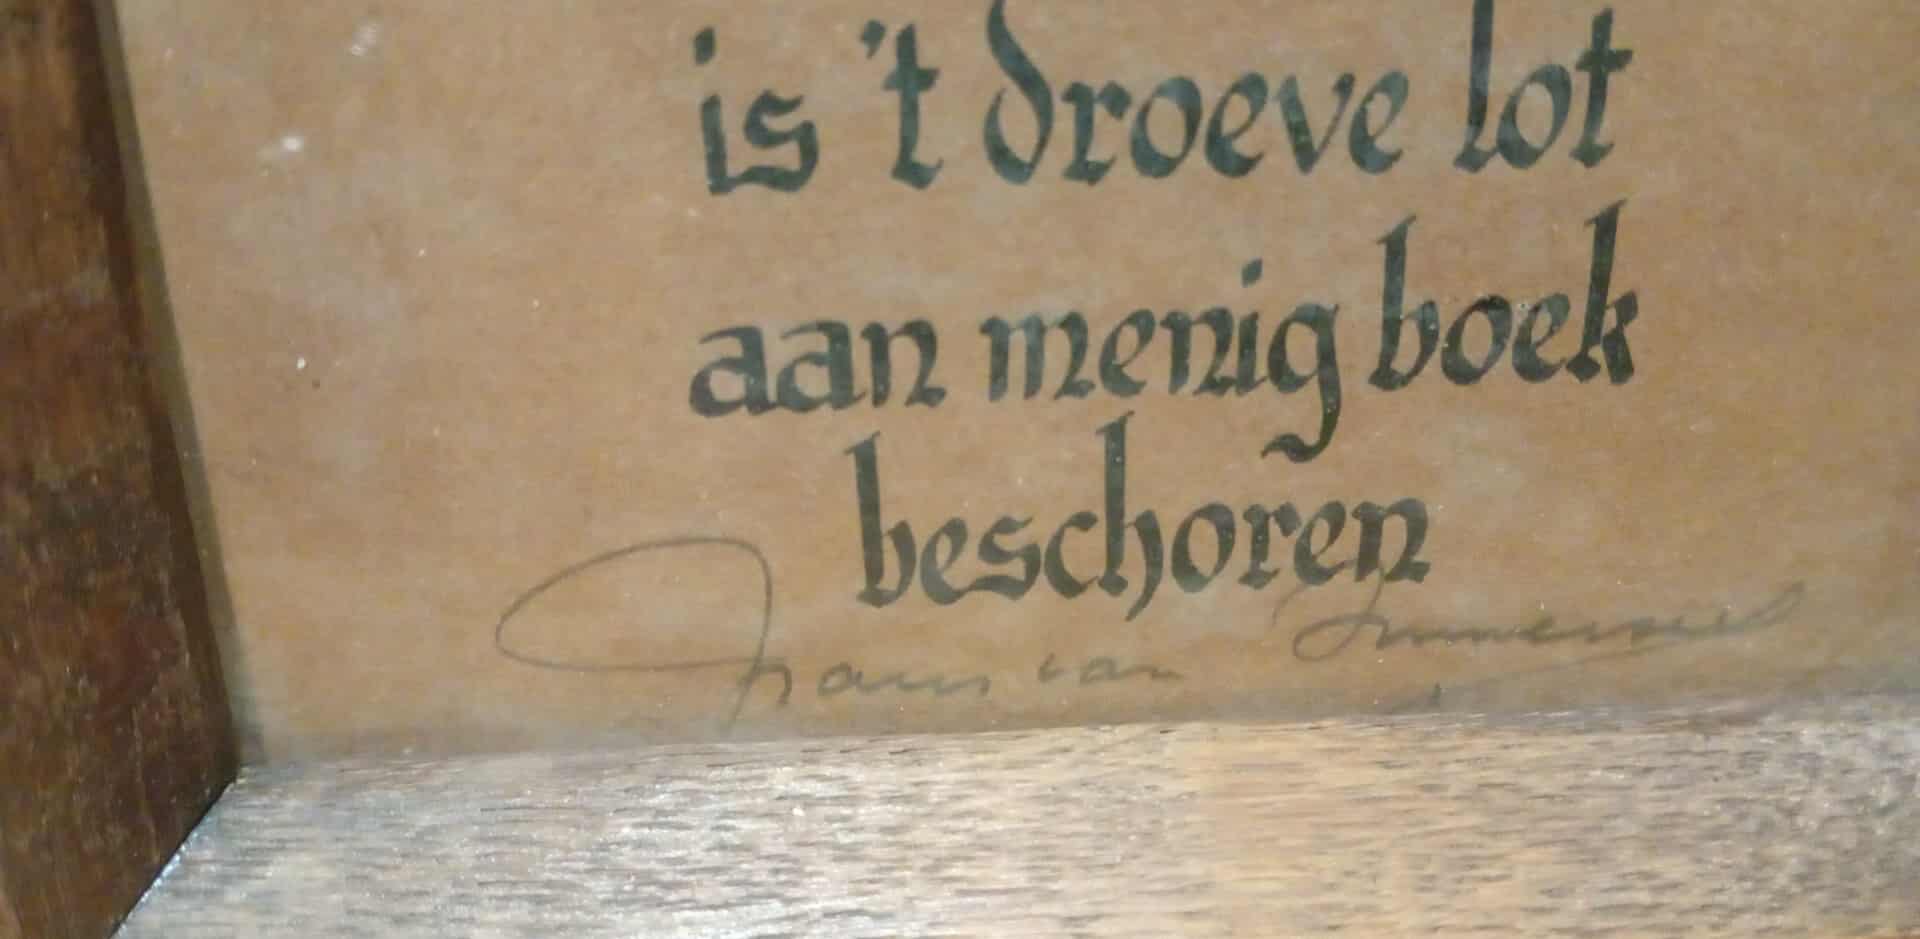 is 't droeve lot
aan menig boek
beschoren
Frans van Immerseel